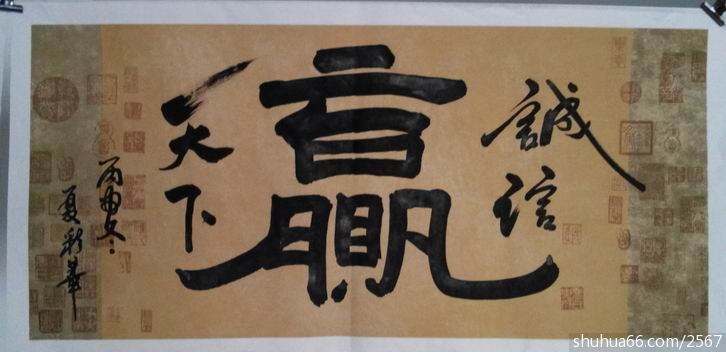 誠信
贏
天下
丙申冬
夏彩華
shuhua66.com/2567